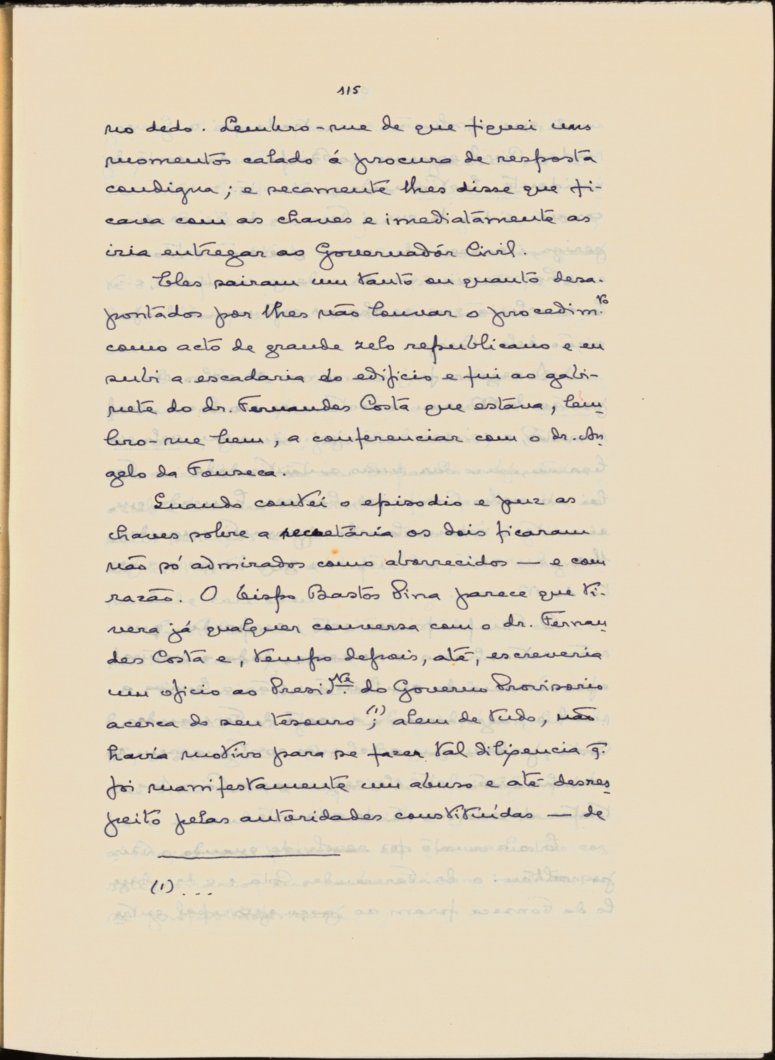 115
no dedo. Lembro-me de que fiquei uns
momentos calado á procura de resposta
condigna; e secamente lhes disse que fi-
cava com as chaves e imediatamente as
iria entregar ao Governadôr Civil.
Eles sairam um tanto ou quanto desa-
pontados por lhes não louvar o procedim.to
como acto de grande zelo republicano e eu
subi a escadaria do edificio e fui ao gabi-
nete do dr. Fernandes Costa que estava, lem-
bro-me bem, a conferenciar com o dr. An-
gelo da Fonseca.
Quando contei o episodio e puz as
chaves sobre a secretária os dois ficaram
não só admirados como aborrecidos — e com
razão. O bispo Bastos Pina parece que ti-
vera já qualquer conversa com o dr. Fernan-
des Costa e, tempo depois, até, escreveria
um oficio ao Presid.te do Governo Provisorio
acerca do seu tesouro (1); alem de tudo, não
havia motivo para se fazer tal diligencia q.
foi manifestamente um abuso e até desres-
peito pelas autoridades constituídas — de
(1) ...